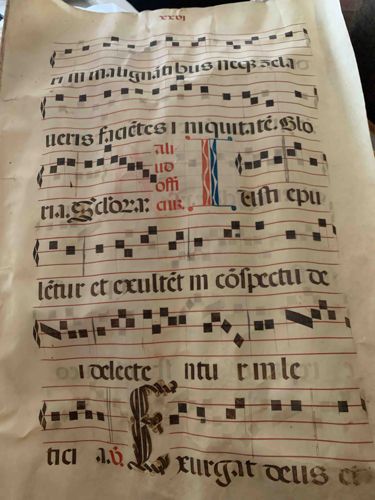 xxvj
ri in malignātibus neqȝ zela
ueris faciētes iniquitatē. Glo
ria. aliud offi Iusti epu
lētur et exultēt in cōspectu de
i delectentur in le
ticia. ℣. Exurgat deus et